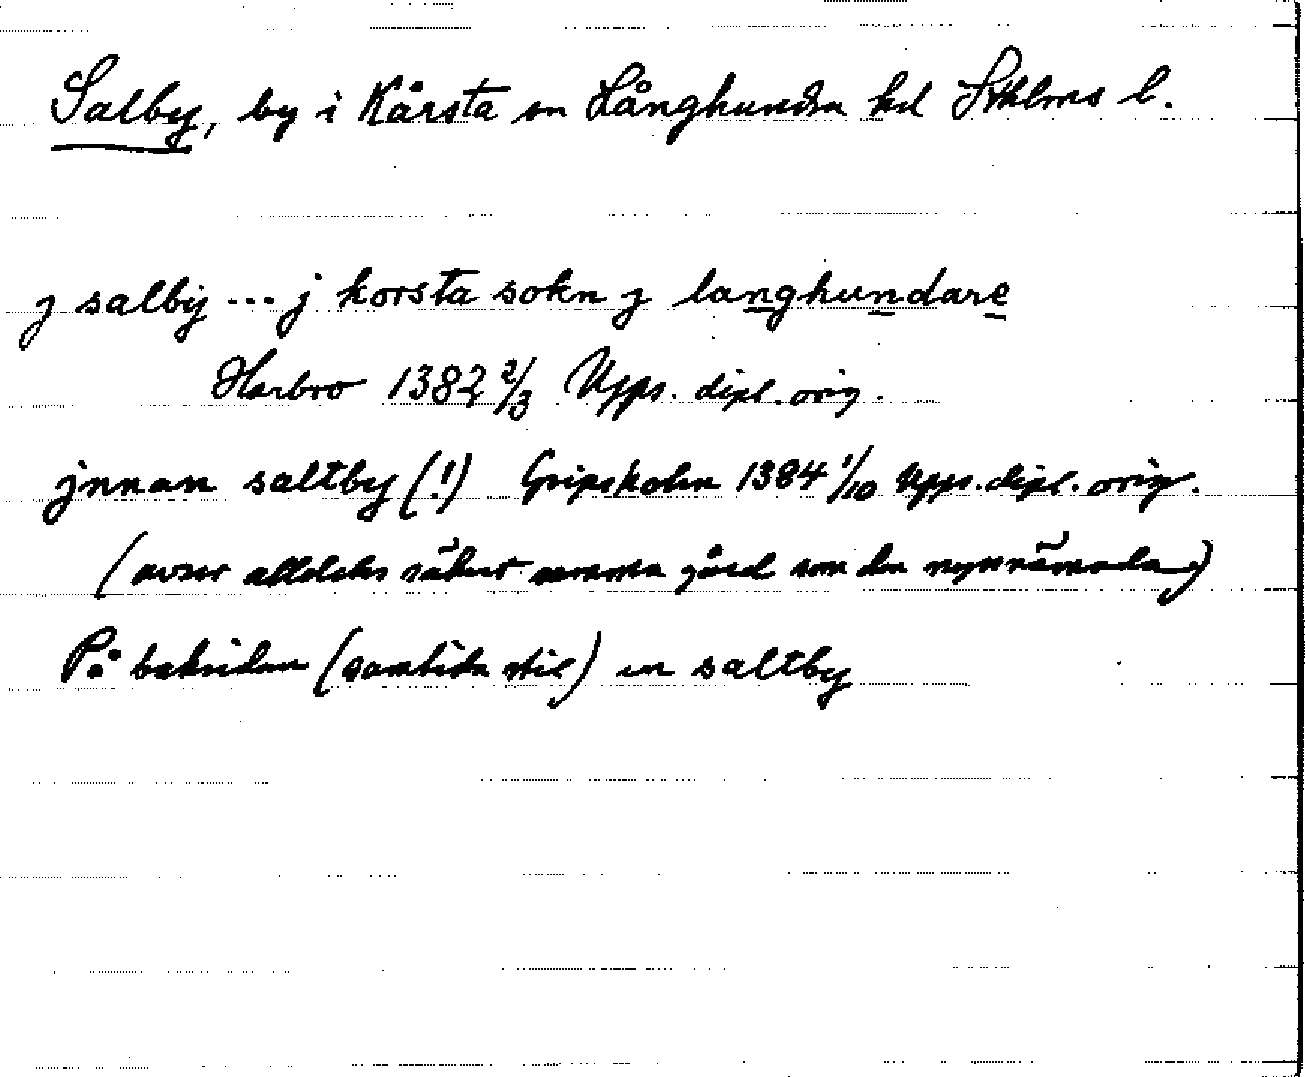 Salby, by i Kårsta sn Långhundra hd Sthlms l.
j salbij ... j korsta sokn j langhundare
Harbro 1382 2/3 Upps. dipl. orig.
jnnan saltby (!) Gripsholm 1384 1/10 Upps. dipl. orig.
(avser alldeles säkert samma gård som den nyssnämnda)
På baksidan (samtida stil) en saltby